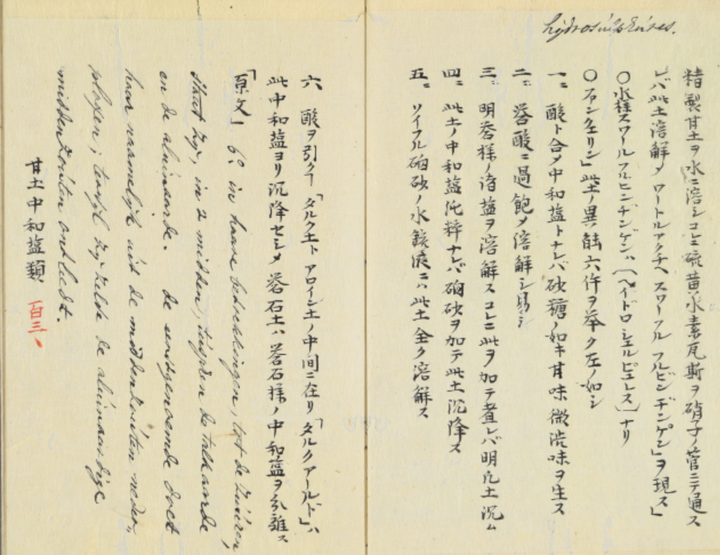 hydrosulphures.
精製甘土ヲ水ニ溶シコレニ硫黄水素瓦斯ヲ硝子ノ管ニテ通ス
レバ此土溶解メ ワートルアクチヘ スワーフル フルビンヂンゲン」ヲ現ス」
〇水様スワールフルビンヂンゲンハ〔ヘイドロシュルピュレス〕ナリ
〇ファンクェリン」此土ノ異能六件ヲ挙ク左ノ如シ
一、酸ト合メ中和塩トナレバ砂糖ノ如キ甘味微渋味ヲ生ス
二、酸ニ過飽メ溶解シ易シ
三、明礬様ノ塩ヲ溶解スコレニ此ヲ加テ煮レバ明礬土沉ム
四、此土ノ中和塩純粋ナレバ硇砂ヲ加テ此土沉降ス
五、ソイフル硇砂ノ水ニハ此土全ク溶解ス
六 酸ヲ引ク「タルクエト アロイン土ノ中間ニ在リ「タルクアールド」ハ
此中和塩ヨリ沉降セシメ 礬石土ハ礬石様ノ中和塩ヲ分離ス
「原文」 6°. in haare betrekkingen, tot de zuuren,
staat zy, in 't midden, tusschen de talkaarde
en de aluinaarde. de eerstgenoemde doet
haar naamelyk uit de middenzouten neder-
ploffen; terwyl zy zelve de aluinaardige
middenzouten ontleedt.
甘土中和塩類 百三、